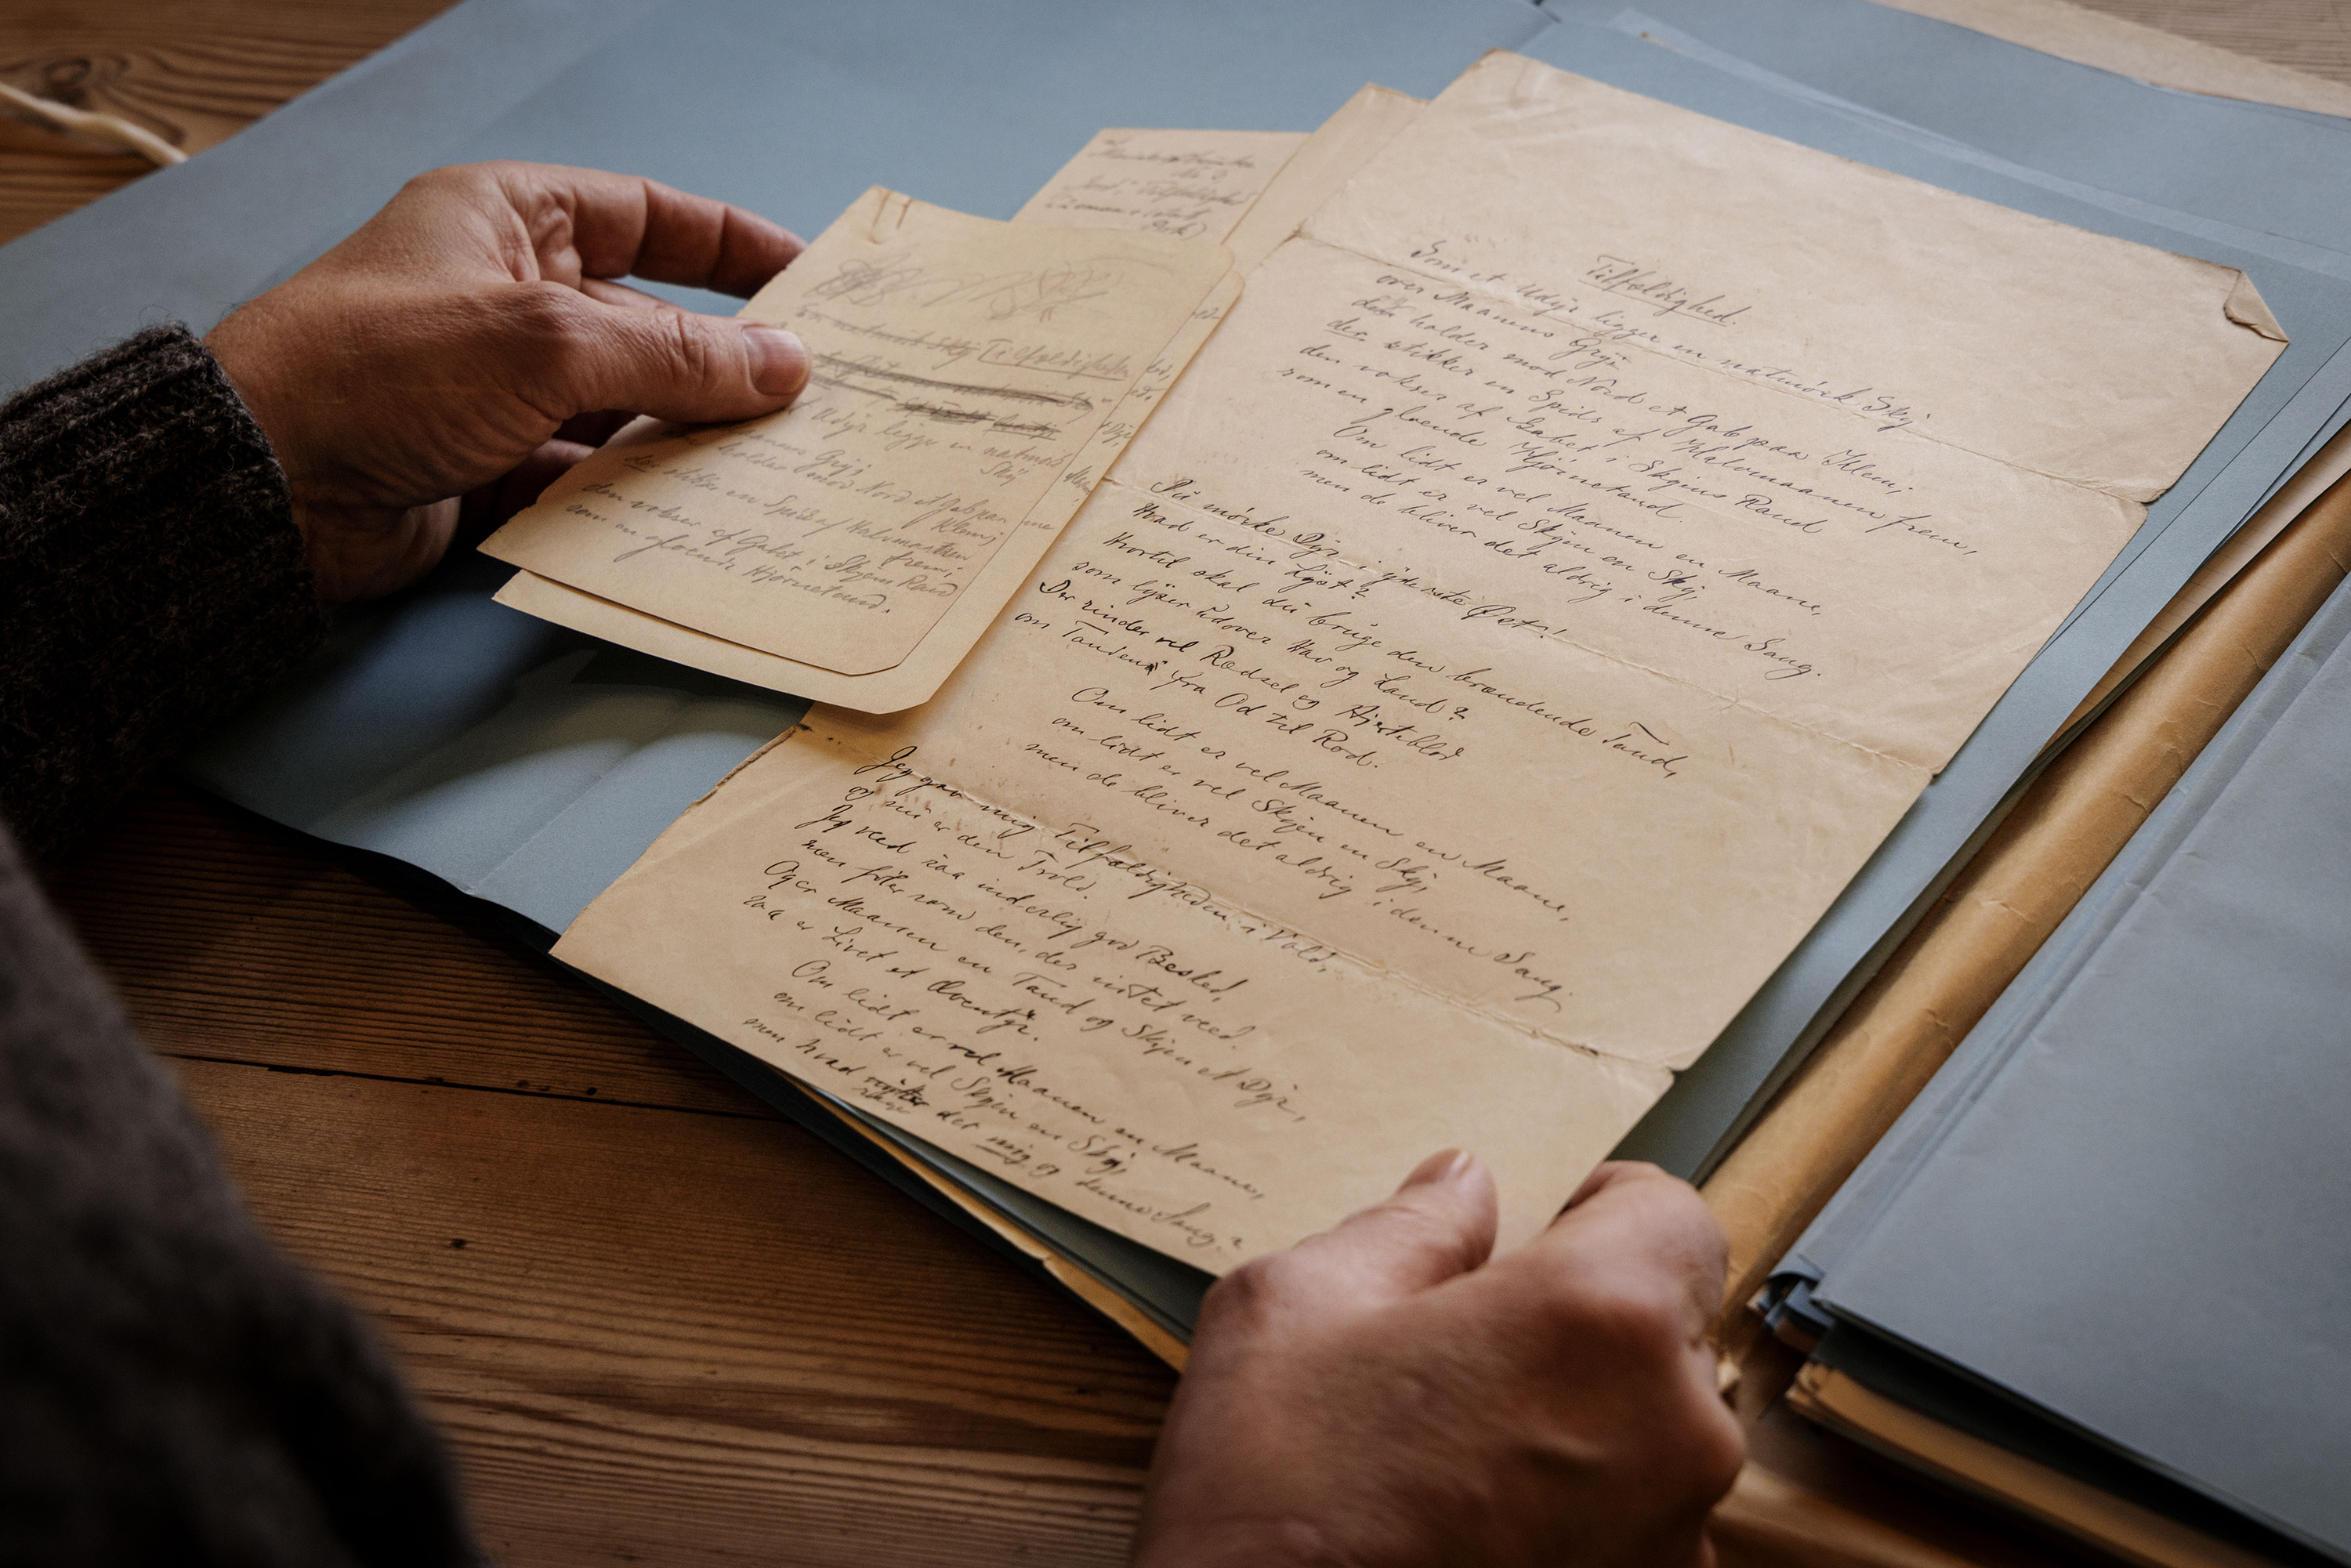 Tilfældighed
Tilfældigheden
Udyr ligger en natmörk
Sky
Maanens Gryn;
holder mod Nord et Gab paa
Klem,
der stikker en Spids af Halvmaanen
frem;
den vokser af Gabet i Skyens Rand
som en gloende Hjörnetand.
Tilfældighed.
Som et Udyr ligger en natmörk Sky
over Maanens Gry;
den holder mod Nord et Gab paa Klem,
der stikker en Spids af Halvmaanen frem,
den vokser af Gabet i Skyens Rand
som en gloende Hjörnetand
Om lidt er vel Maanen en Maane,
om lidt er vel Skyen en Sky,
men de bliver det aldrig i denne Sang.
Du mörke Dyr i yderste Öst!
Hvad er din Lyst?
Hvortil skal du bruge den brændende Tand,
som lyser udover Hav og Land?
Der rinder vel Rædsel og Hjerteblod
om Tanden fra Od til Rod.
Om lidt er vel Maanen en Maane,
om lidt er vel Skyen en Sky,
men de bliver det aldrig i denne Sang.
Jeg gav mig Tilfældigheden i Vold,
og nu er den Trold.
Jeg veed saa inderlig god Besked,
men föler som den, der intet veed.
Og er Maanen en Tand og Skyen et Dyr,
saa er Livet et Æventyr.
Om lidt er vel Maanen en Maane,
om lidt er vel Skyen en Sky,
men hvad
det mig og denne Sang?